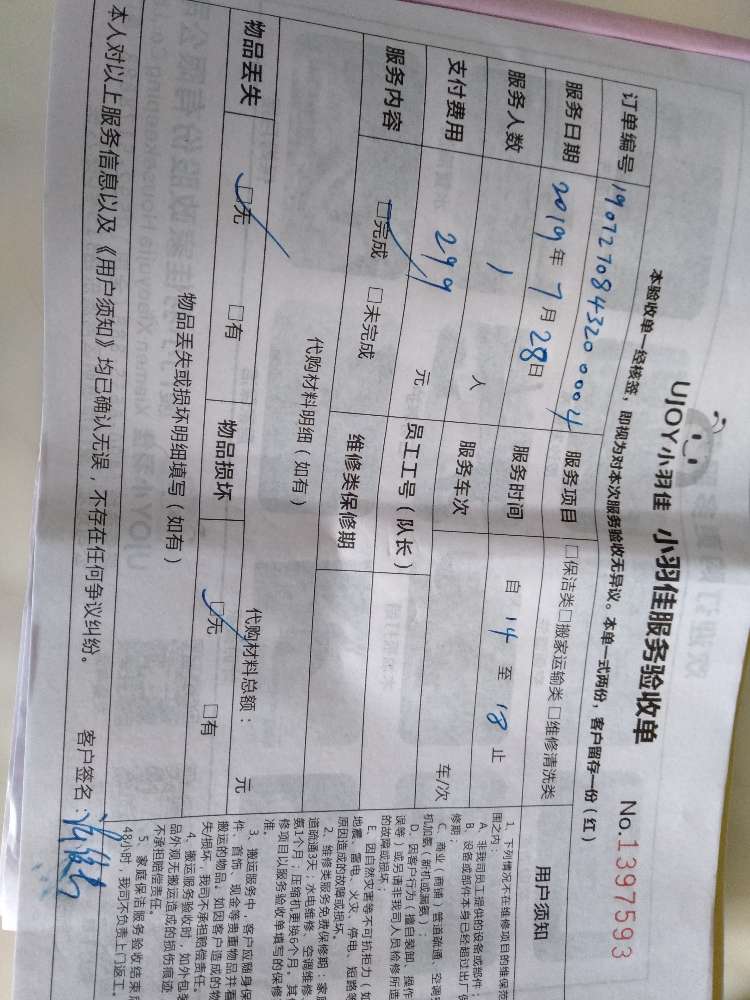 UJOY小羽佳 小羽佳服务验收单
No.1397593
本验收单一经核签，即视为对本次服务验收无异议。本单一式两份，客户留存一份（红）
订单编号 190727084320 0004 服务项目 □保洁类□搬家运输类□维修清洗类
服务日期 2019年7月28日 服务时间 自 14 至 18 止
服务人数 1 人 服务车次 车/次
支付费用 299 元 员工工号（队长）
服务内容 □完成 □未完成 维修类保修期
代购材料明细（如有） 代购材料总额： 元
物品丢失 □无 □有 物品损坏 □无 □有
物品丢失或损坏明细填写（如有）
本人对以上服务信息以及《用户须知》均已确认无误，不存在任何争议纠纷。 客户签名：
用户须知
1、下列情况不在维修项目的维保范
围之内：
A、非我司员工提供的设备或部件；
B、设备或部件本身已经超过出厂
修期；
C、商业（商铺）管道疏通，空调
机加氨（新机或漏氨）；
D、因客户行为（擅自装卸、操作
误等）或另请非我司人员检修所造
的故障或损坏；
E、因自然灾害等不可抗拒力（如
地震、雷电、火灾、停电、短路等
原因造成的故障或损坏。
2、维修类服务免费保修期：家庭
道疏通3天；水电维修、空调维修
氨1个月；压缩机更换6个月。其
修项目以服务验收单填写的保修
准。
3、搬运服务中，客户应随身保
件、首饰、现金等贵重物品并看
搬运的物品。如因客户造成的物
失/损坏，我司不承担赔偿责任。
4、搬运服务验收时，如外包装
品外观无搬运造成的损伤痕迹
不承担赔偿责任。
5、家庭保洁服务验收结束后
48小时，我司不负责上门返工。